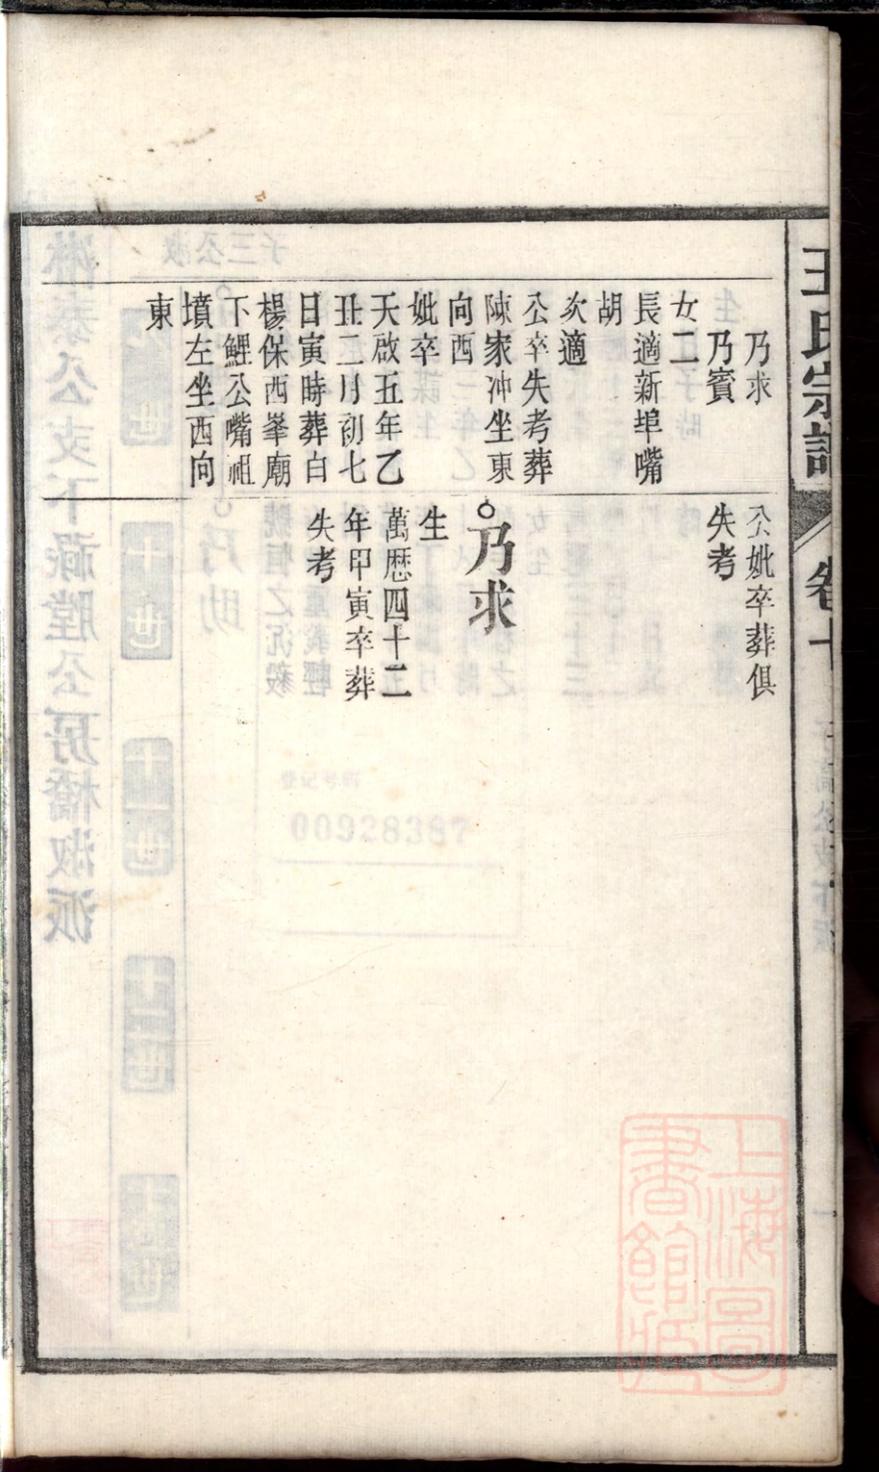 王氏宗譜 卷十
乃求
乃賓
女二
長適新埠嘴
胡
次適
公卒失考葬
陳家冲坐東
向西
妣卒
天啟五年乙
丑二月初七
日寅時葬白
楊保西峯廟
下鯉公嘴祖
墳左坐西向
東
公妣卒葬俱
失考
乃求
生
萬歷四十二
年甲寅卒葬
失考
上海圖
書館藏
00928387